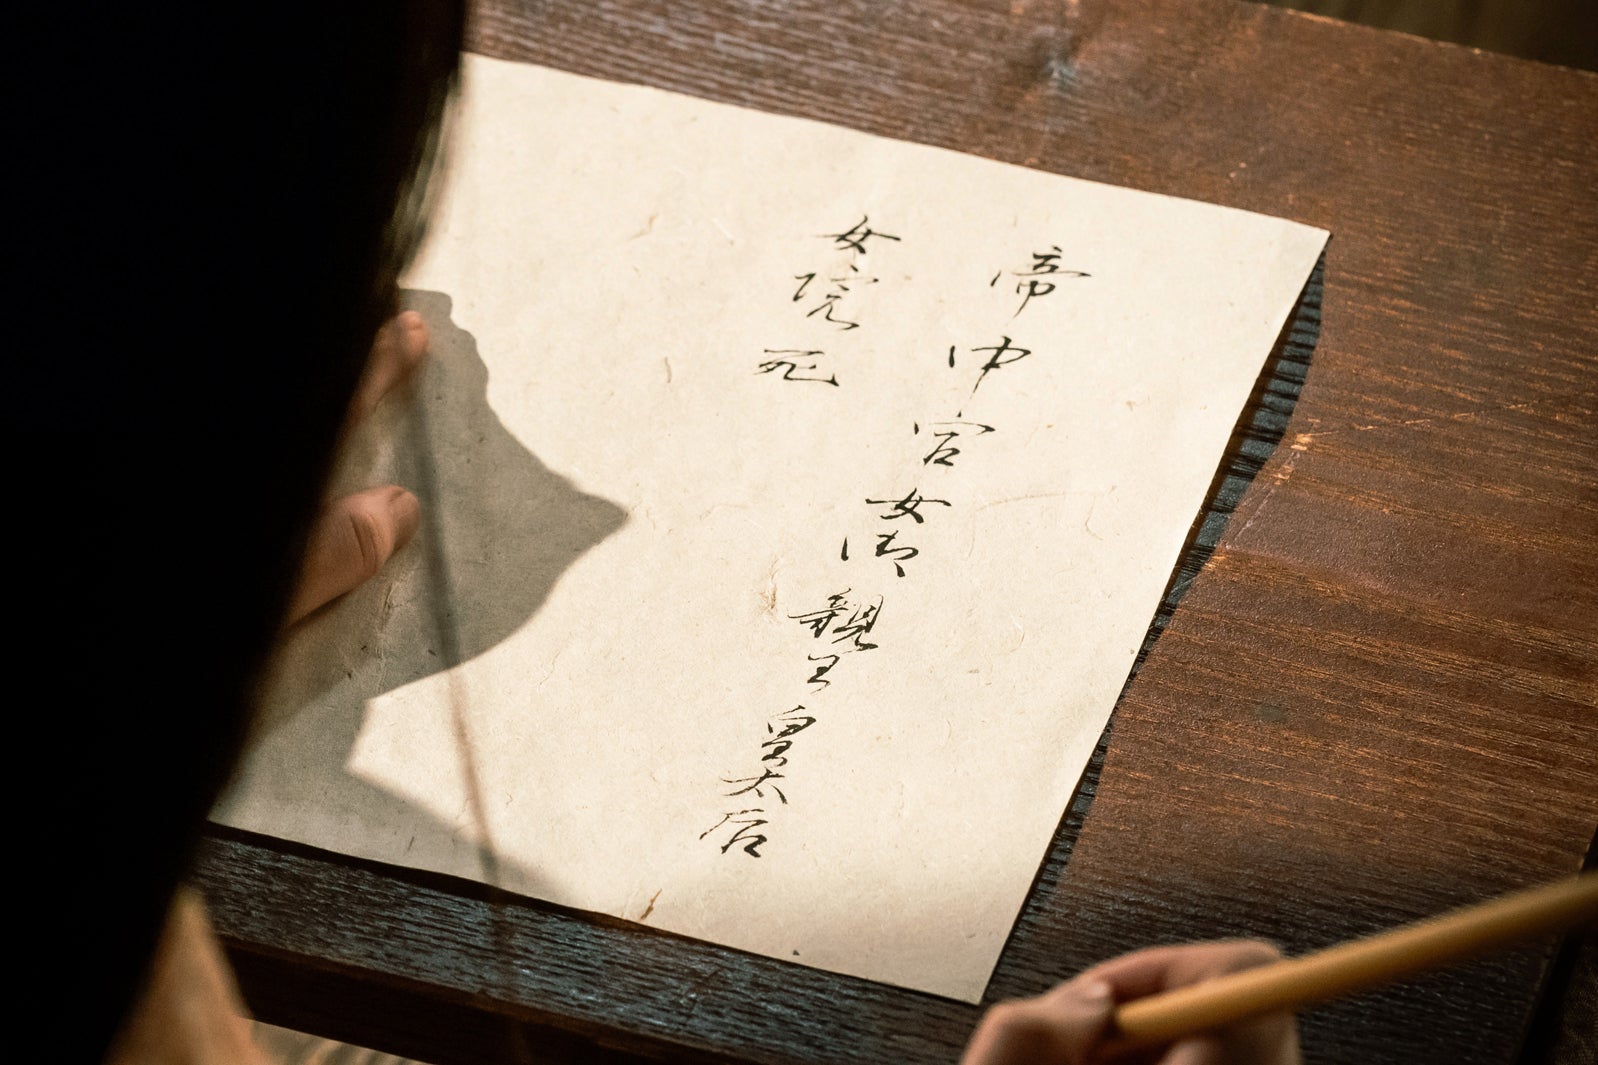 帝中宮女御親王皇太后
女院死